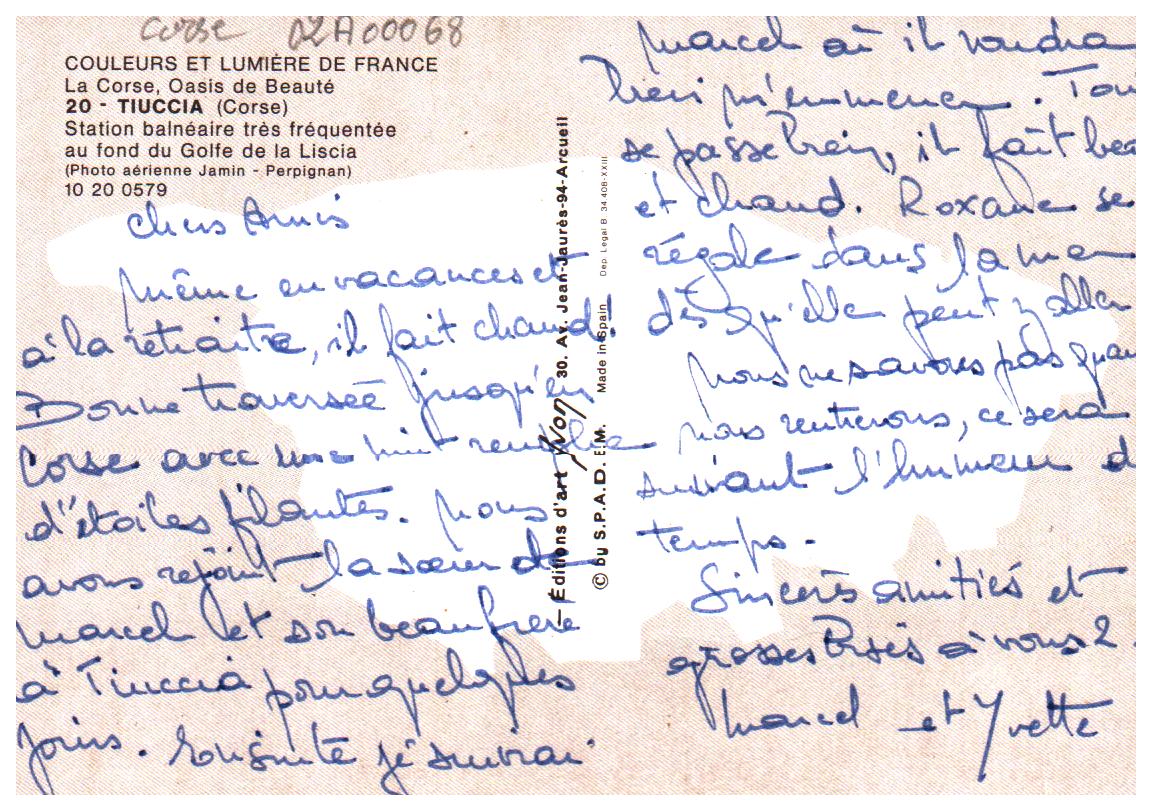 Corse 02A00068
COULEURS ET LUMIÈRE DE FRANCE
La Corse, Oasis de Beauté
20 - TIUCCIA (Corse)
Station balnéaire très fréquentée
au fond du Golfe de la Liscia
(Photo aérienne Jamin - Perpignan)
10 20 0579
Chers Amis
même en vacances et
à la retraite, il fait chaud.
Bonne traversée jusqu'en
Corse avec une nuit remplie
d'étoiles filantes. Nous
avons rejoint la sœur de
Marcel et son beau frere
à Tiuccia pour quelques
jours. Ensuite je suivrai
— Éditions d'art YVON 30. Av. Jean-Jaurès-94-Arcueil
© by S.P.A.D.E.M. Made in Spain Dep. Legal B. 34.408-XXIII
Marcel où il voudra
bien m'emmener. Tout
se passe bien, il fait bea
et chaud. Roxane se
régale dans la mer
dès qu'elle peut y aller
Nous ne savons pas quan
nous rentrerons, ce sera
suivant l'humeur d
temps.
Sincères amitiés et
grosses Bises à vous 2.
Marcel et Yvette